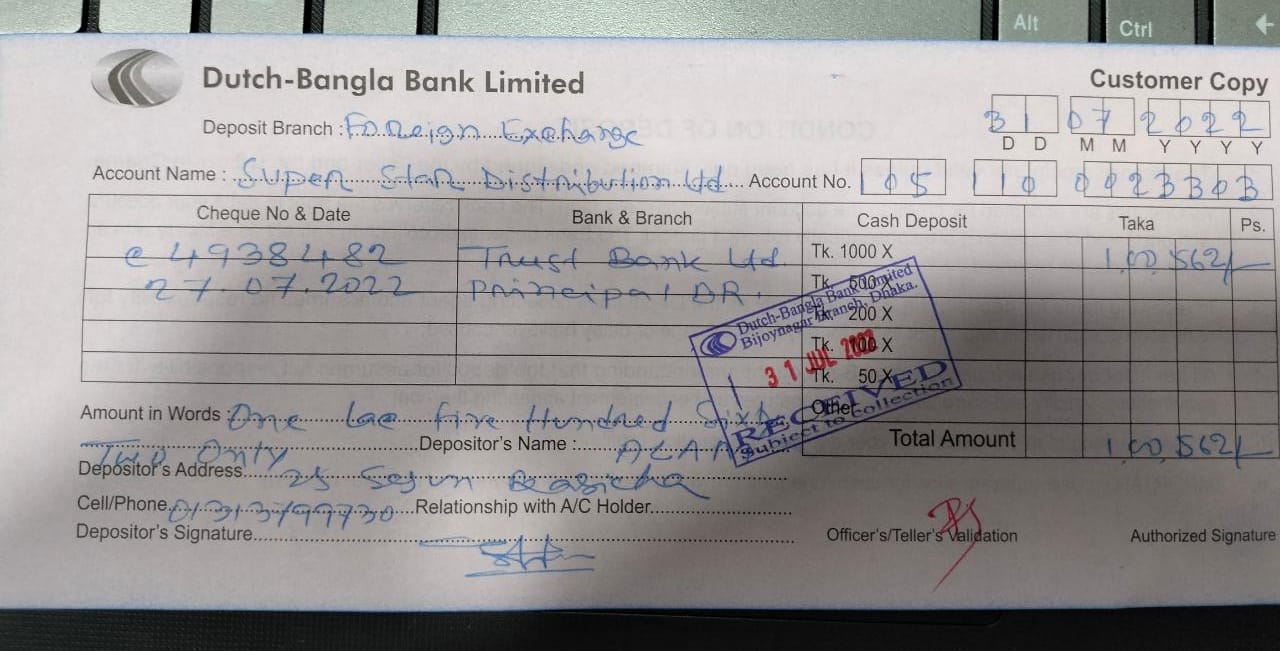 Alt Ctrl
Dutch-Bangla Bank Limited
Customer Copy
Deposit Branch : Foreign Exchange
31 07 2022
D D M M Y Y Y Y
Account Name : Super Star Distribution Ltd. Account No. 105 110 0023303
Cheque No & Date Bank & Branch Cash Deposit Taka Ps.
49384 82 Trust Bank Ltd. Tk. 1000 X 1,00,562/-
27.07.2022 Principal BR. Tk. 500 X
Tk. 200 X
Tk. 100 X
Tk. 50 X
Other
Dutch-Bangla Bank Limited
Bijoynagar Branch, Dhaka.
31 JUL 2022
RECEIVED
Subject to Collection
Amount in Words : One lac five Hundred Sixty
Two Only Depositor's Name :
Total Amount 1,00,562/-
Depositor's Address 25
Cell/Phone 01313799730 Relationship with A/C Holder
Depositor's Signature
Officer's/Teller's Validation Authorized Signature